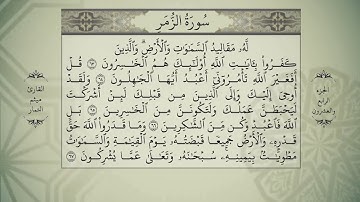 سُورَةُ الزُّمَر
لَّهُۥ مَقَالِيدُ ٱلسَّمَٰوَٰتِ وَٱلْأَرْضِ ۗ وَٱلَّذِينَ
كَفَرُوا۟ بِـَٔايَٰتِ ٱللَّهِ أُو۟لَٰٓئِكَ هُمُ ٱلْخَٰسِرُونَ ٦٣ قُلْ
أَفَغَيْرَ ٱللَّهِ تَأْمُرُوٓنِّىٓ أَعْبُدُ أَيُّهَا ٱلْجَٰهِلُونَ ٦٤ وَلَقَدْ
أُوحِىَ إِلَيْكَ وَإِلَى ٱلَّذِينَ مِن قَبْلِكَ لَئِنْ أَشْرَكْتَ
لَيَحْبَطَنَّ عَمَلُكَ وَلَتَكُونَنَّ مِنَ ٱلْخَٰسِرِينَ ٦٥ بَلِ
ٱللَّهَ فَٱعْبُدْ وَكُن مِّنَ ٱلشَّٰكِرِينَ ٦٦ وَمَا قَدَرُوا۟ ٱللَّهَ حَقَّ
قَدْرِهِۦ وَٱلْأَرْضُ جَمِيعًا قَبْضَتُهُۥ يَوْمَ ٱلْقِيَٰمَةِ وَٱلسَّمَٰوَٰتُ
مَطْوِيَّٰتٌۢ بِيَمِينِهِۦ ۚ سُبْحَٰنَهُۥ وَتَعَٰلَىٰ عَمَّا يُشْرِكُونَ ٦٧
الجزء
الرابع
والعشرون
القارئ
ميثم
التمار